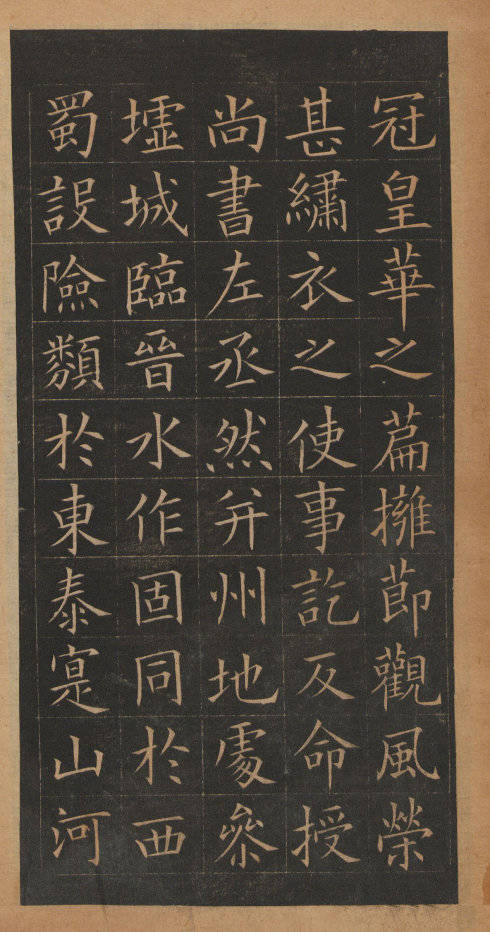 冠皇華之篇擁節觀風榮
甚繡衣之使事訖反命授
尚書左丞然并州地處叅
墟城臨晉水作固同於西
蜀設險類於東泰寔山河